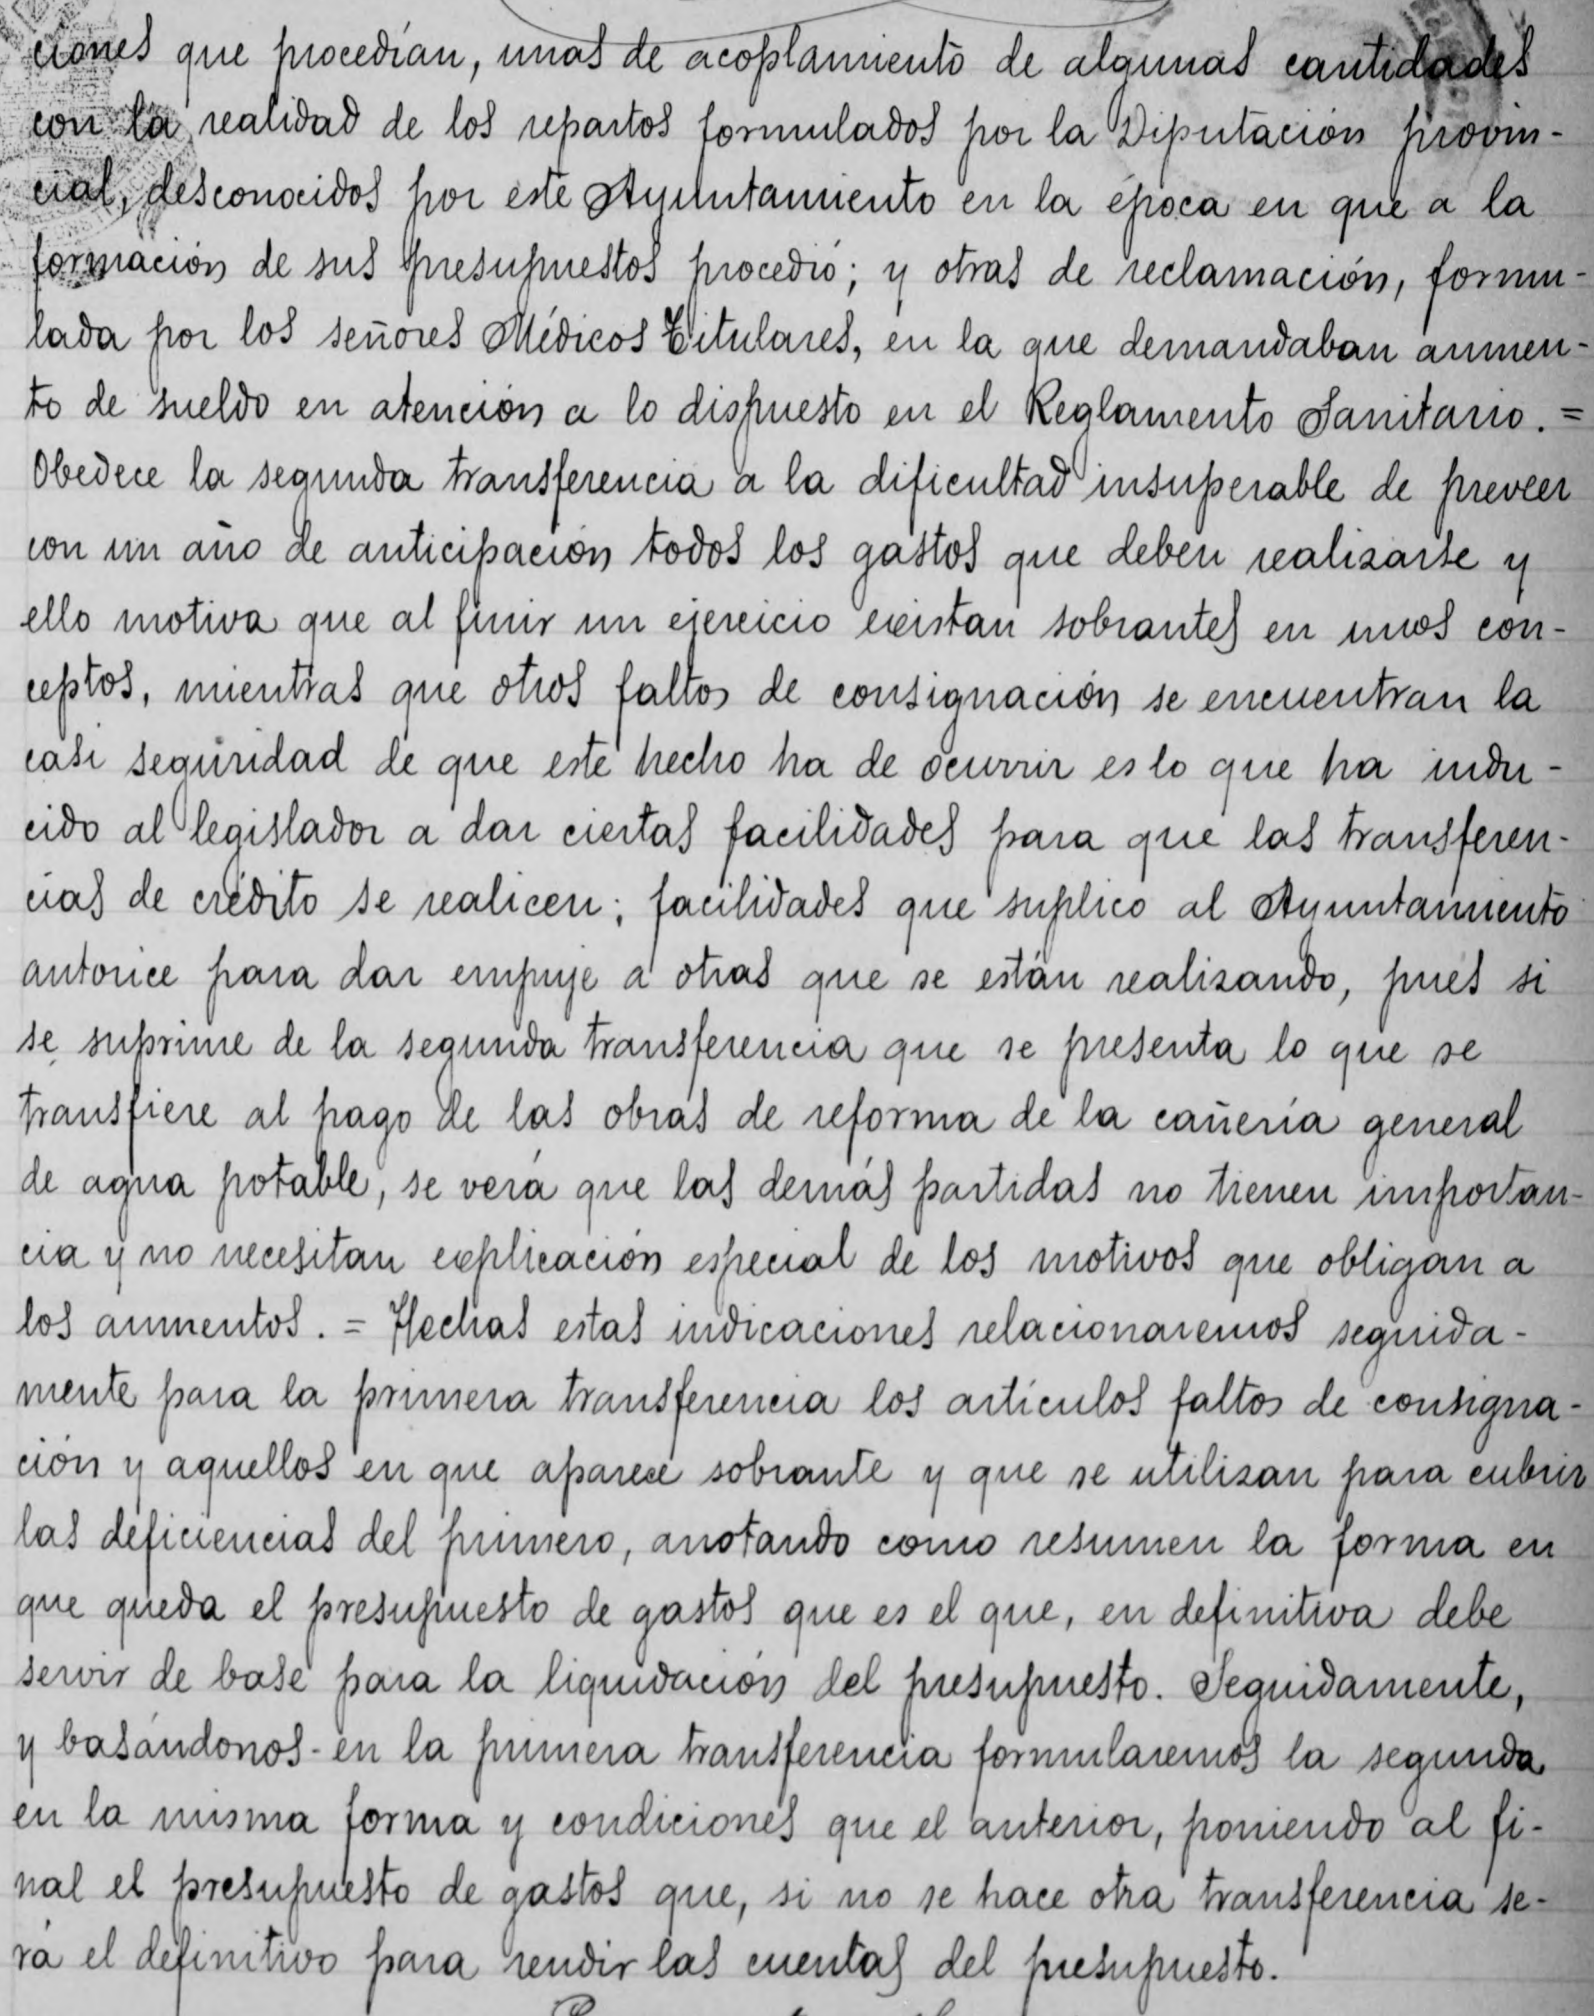 ciones que procedían, unas de acoplamiento de algunas cantidades
con la realidad de los repartos formulados por la Diputación provin-
cial, desconocidos por este Ayuntamiento en la época en que a la
formación de sus presupuestos procedió; y otras de reclamación, formu-
lada por los señores Médicos Titulares, en la que demandaban aumen-
to de sueldo en atención a lo dispuesto en el Reglamento Sanitario. =
Obedece la segunda transferencia a la dificultad insuperable de preveer
con un año de anticipación todos los gastos que deben realizarse y
ello motiva que al finir un ejercicio existan sobrantes en unos con-
ceptos, mientras que otros faltos de consignación se encuentran la
casi seguridad de que este hecho ha de ocurrir es lo que ha indu-
cido al legislador a dar ciertas facilidades para que las transferen-
cias de crédito se realicen; facilidades que suplico al Ayuntamiento
autorice para dar empuje a otras que se están realizando, pues si
se suprime de la segunda transferencia que se presenta lo que se
transfiere al pago de las obras de reforma de la cañería general
de agua potable, se verá que las demás partidas no tienen importan-
cia y no necesitan explicación especial de los motivos que obligan a
los aumentos. = Hechas estas indicaciones relacionaremos seguida-
mente para la primera transferencia los artículos faltos de consigna-
ción y aquellos en que aparece sobrante y que se utilizan para cubrir
las deficiencias del primero, anotando como resumen la forma en
que queda el presupuesto de gastos que es el que, en definitiva debe
servir de base para la liquidación del presupuesto. Seguidamente,
y basándonos-en la primera transferencia formularemos la segunda
en la misma forma y condiciones que el anterior, poniendo al fi-
nal el presupuesto de gastos que, si no se hace otra transferencia se-
rá el definitivo para rendir las cuentas del presupuesto.